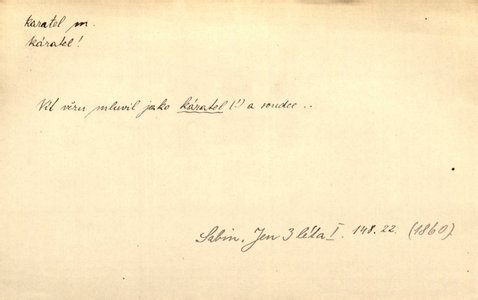 karatel m.
káratel!
Vít věru mluvil jako káratel (!) a soudce ..
Sabin. Jen 3 léta I. 148. 22. (1860).